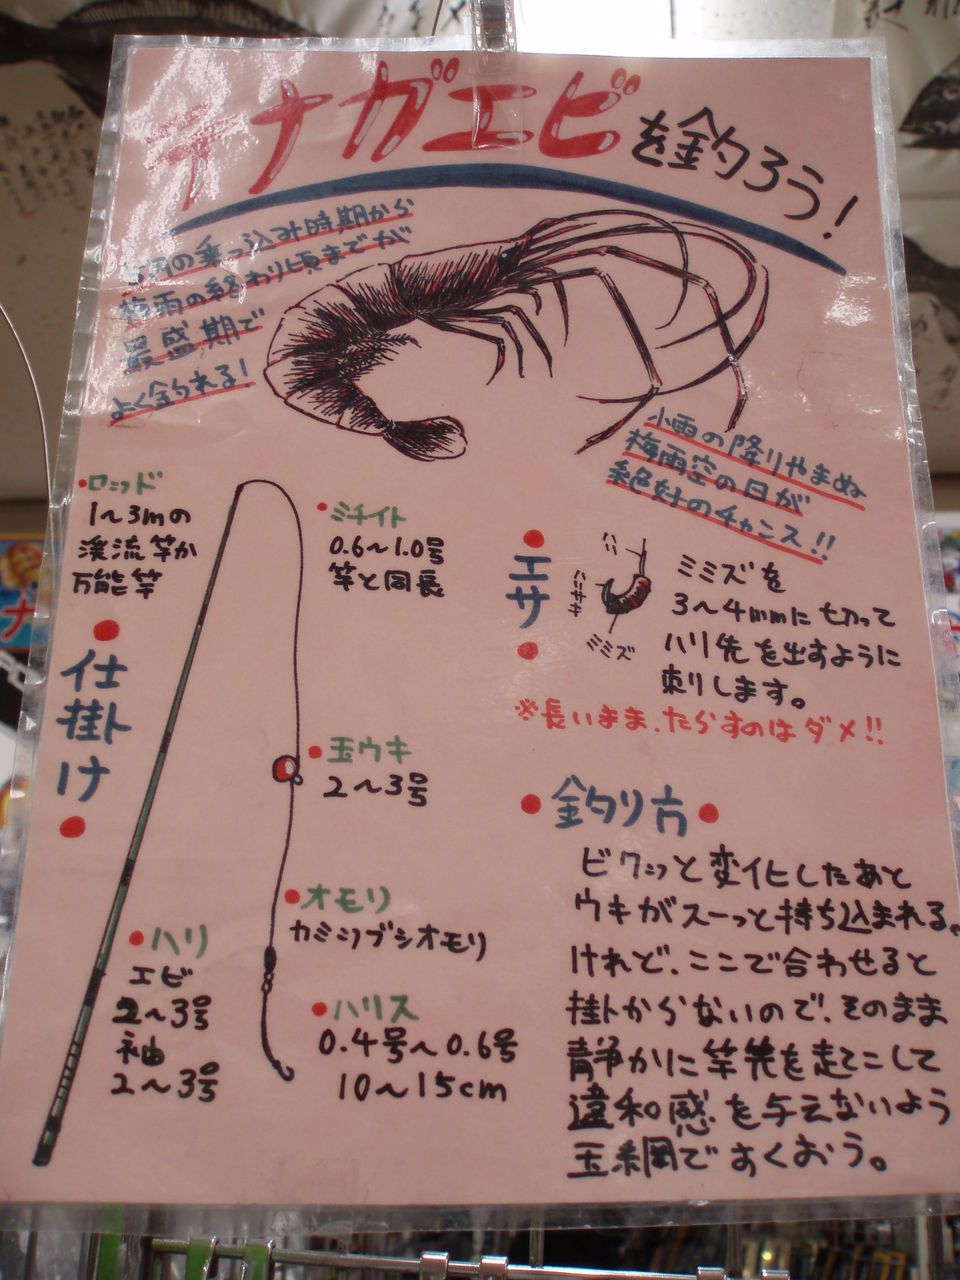 テナガエビを釣ろう！
の乗っ込み時期から
梅雨の終わり頃までが
最盛期で
よく釣れる！
小雨の降りやまぬ
梅雨空の日が
絶好のチャンス!!
・ロッド
1〜3mの
渓流竿か
万能竿
・ミチイト
0.6〜1.0号
竿と同長
・仕掛け・
・玉ウキ
2〜3号
・オモリ
カミツブシオモリ
・ハリ
エビ
2〜3号
袖
2〜3号
・ハリス
0.4号〜0.6号
10〜15cm
・エサ・
ハリ
ハリサキ
ミミズ
ミミズを
3〜4mmに切って
ハリ先を出すように
刺します。
※長いまま、たらすのはダメ!!
・釣り方・
ビクッと変化したあと
ウキがスーっと持ち込まれる。
けれど、ここで合わせると
掛からないので、そのまま
静かに竿先を起こして
違和感を与えないよう
玉網ですくおう。